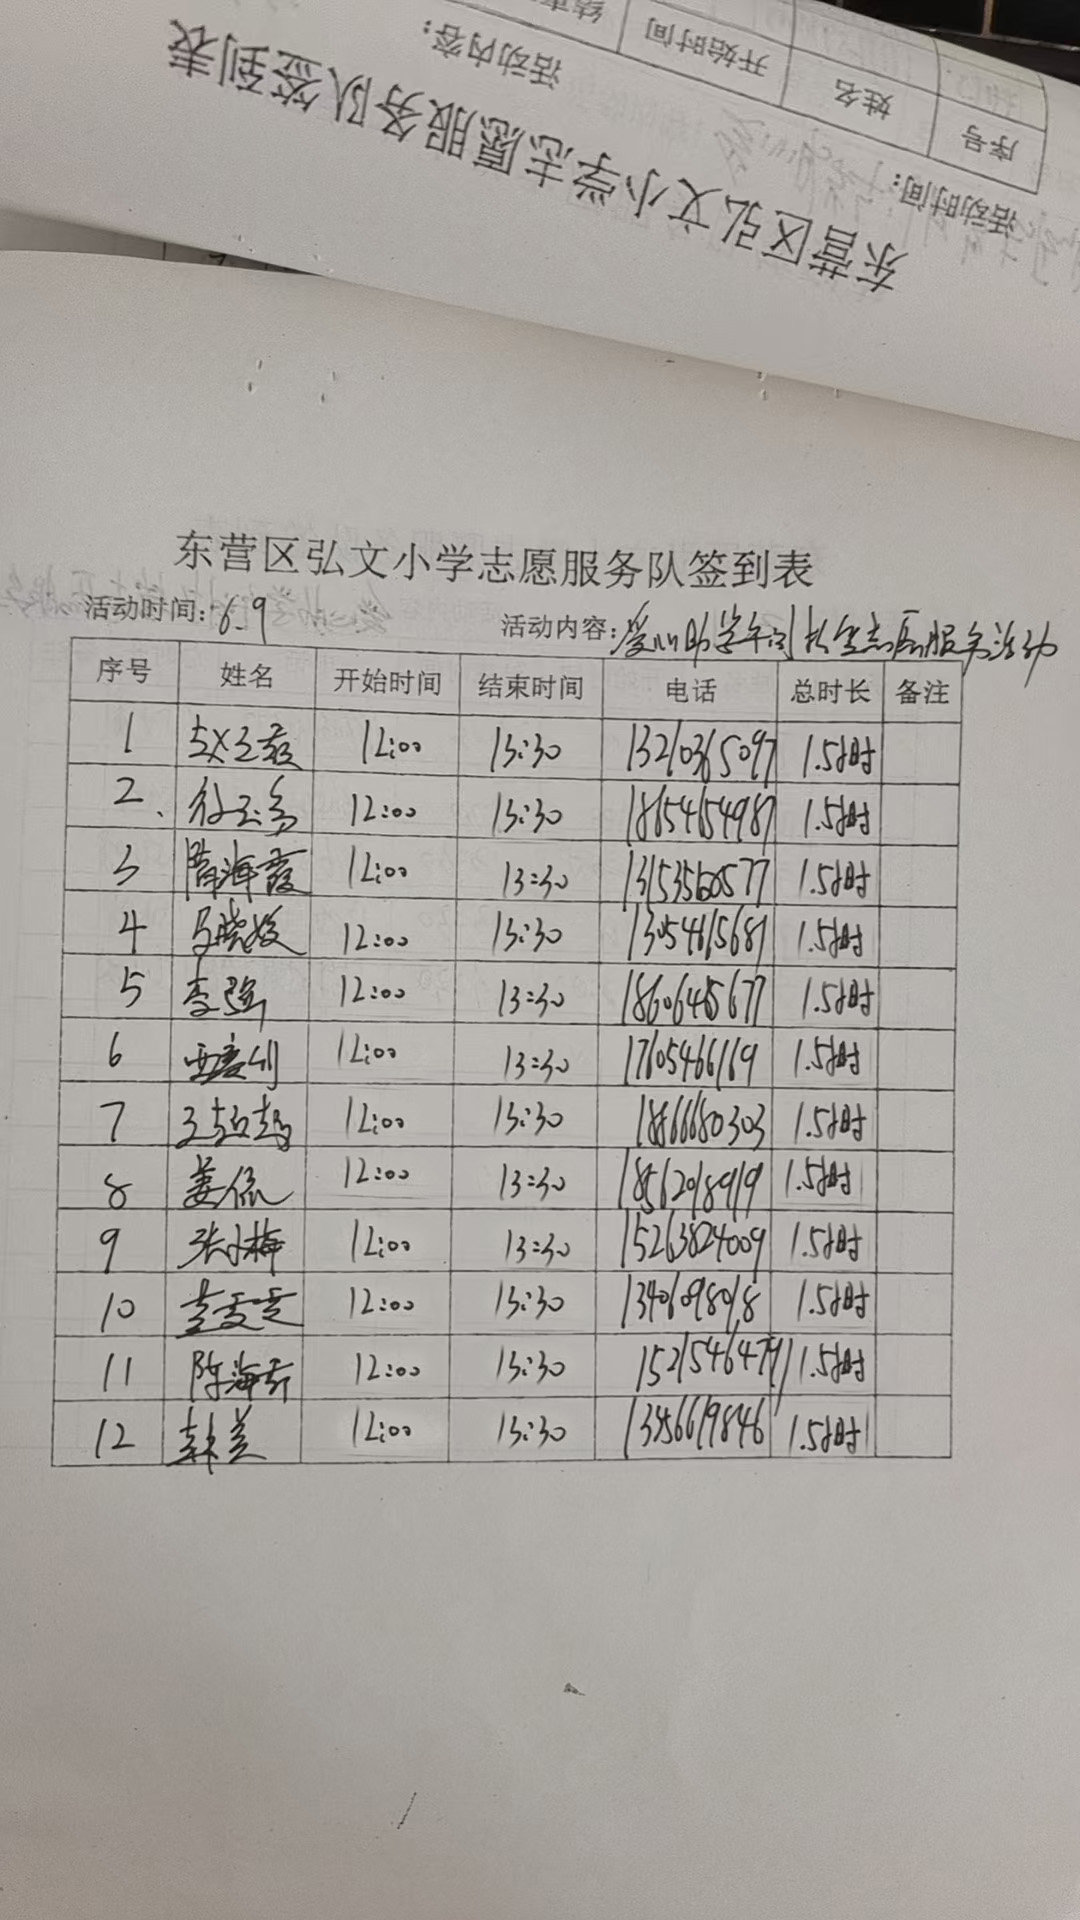 东营区弘文小学志愿服务队签到表
活动时间: 活动内容:
序号 姓名 开始时间
东营区弘文小学志愿服务队签到表
活动时间: 6.9 活动内容: 爱心助学午间托管志愿服务活动
序号 姓名 开始时间 结束时间 电话 总时长 备注
1 12:00 13:30 13210365097 1.5小时
2 12:00 13:30 18654654987 1.5小时
3 隋海霞 12:00 13:30 13153560577 1.5小时
4 马晓姣 12:00 13:30 13054615681 1.5小时
5 李强 12:00 13:30 1.5小时
6 12:00 13:30 17605466169 1.5小时
7 12:00 13:30 18666680303 1.5小时
8 姜依 12:00 13:30 18562018919 1.5小时
9 张小梅 12:00 13:30 15263824009 1.5小时
10 12:00 13:30 13406098018 1.5小时
11 陈海云 12:00 13:30 1.5小时
12 韩美 12:00 13:30 13456619846 1.5小时